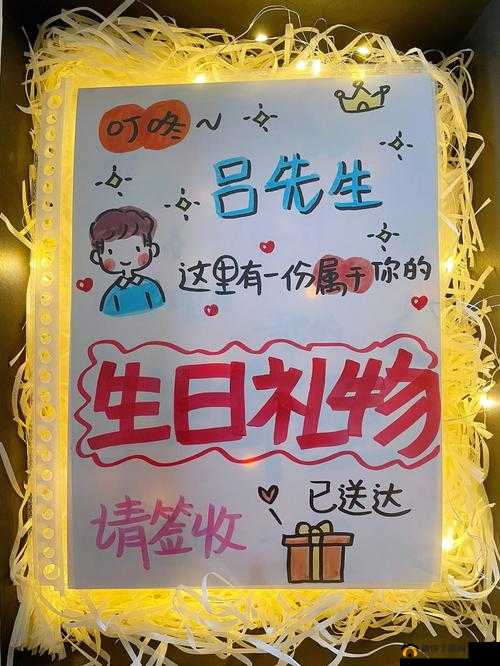 叮咚~
吕先生
这里有一份属于你的
生日礼物
已送达
请签收